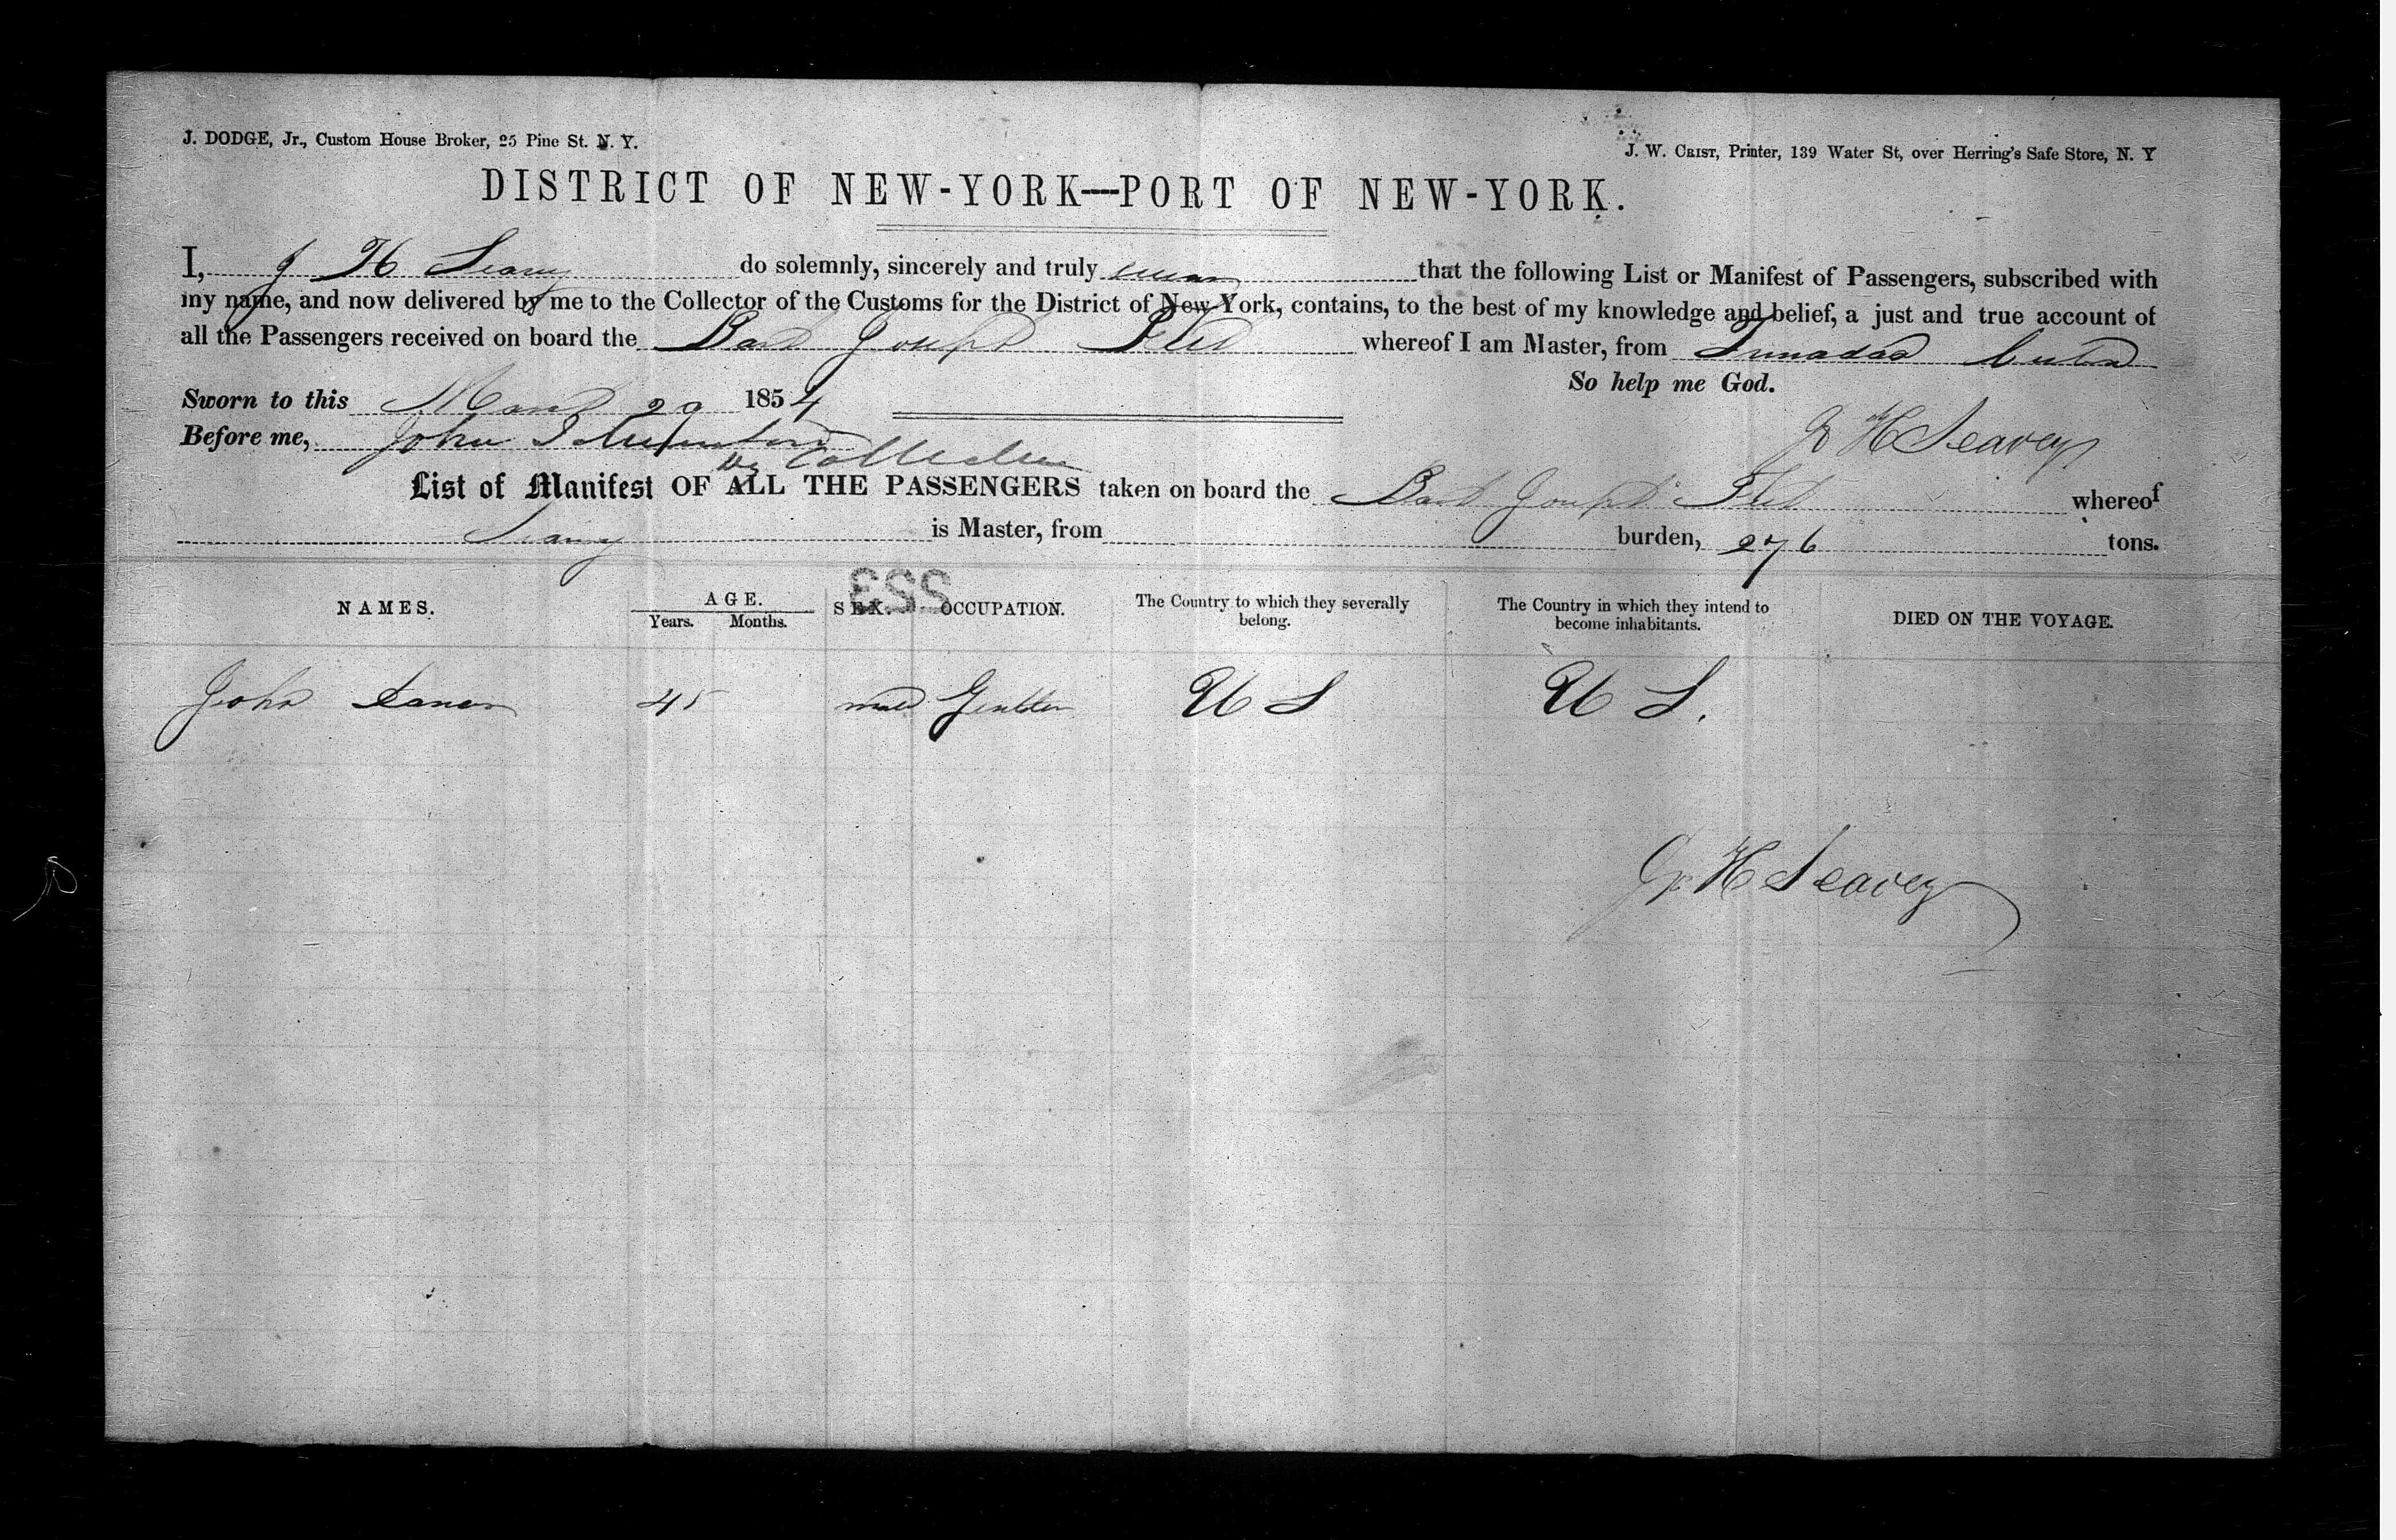 J. DODGE, Jr., Custom House Broker, 25 Pine St. N. Y.
J. W. CRIST, Printer, 139 Water St, over Herring's Safe Store, N. Y
DISTRICT OF NEW-YORK—PORT OF NEW-YORK.
I, J H Seavey do solemnly, sincerely and truly swear that the following List or Manifest of Passengers, subscribed with
my name, and now delivered by me to the Collector of the Customs for the District of New York, contains, to the best of my knowledge and belief, a just and true account of
all the Passengers received on board the Bark Joseph whereof I am Master, from Cuba
So help me God.
Sworn to this March 29 1854
J H Seavey
Before me, John
Collector
List of Manifest OF ALL THE PASSENGERS taken on board the Bark Joseph whereof
Seavey is Master, from burden, 276 tons.
553
NAMES. AGE. SEX. OCCUPATION. The Country to which they severally belong. The Country in which they intend to become inhabitants. DIED ON THE VOYAGE.
Years. Months.
John 45 male U S U S.
J H Seavey